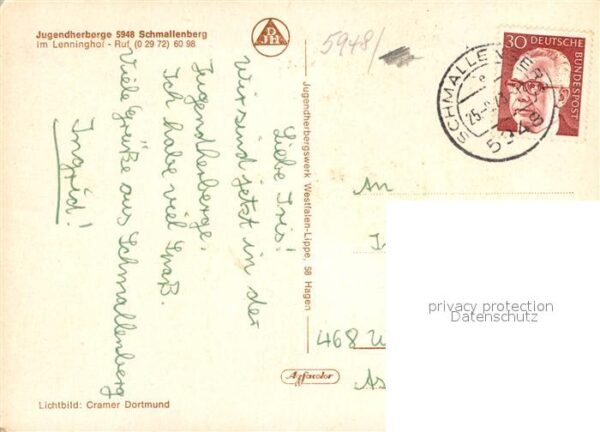 Jugendherberge 5948 Schmallenberg
Im Lenninghof - Ruf (0 29 72) 60 98
DJH
5948/
30 DEUTSCHE BUNDESPOST
SCHMALLENBERG
594
Liebe Iris!
Wir sind jetzt in der
Jugendherberge.
Ich habe viel Spaß.
Viele Grüße aus Schmallenberg
Ingrid!
Jugendherbergswerk Westfalen-Lippe, 58 Hagen
An
468
privacy protection
Datenschutz
Agfacolor
Lichtbild: Cramer Dortmund